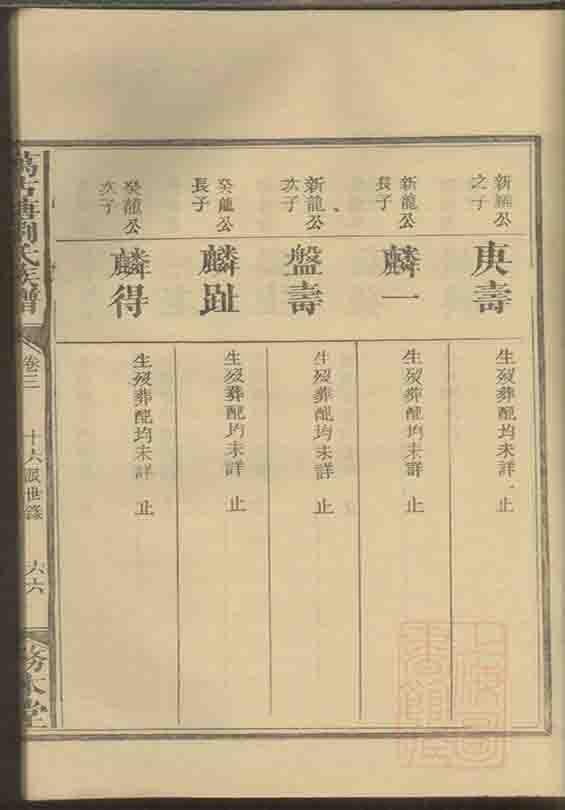 新龍公
之子
庚壽
生歿葬配均未詳 止
新龍公
長子
麟一
生歿葬配均未詳 止
新龍公
次子
盤壽
生歿葬配均未詳 止
癸龍公
長子
麟趾
生歿葬配均未詳 止
癸龍公
次子
麟得
生歿葬配均未詳 止
萬古塘劉氏族譜
卷三
十六派世錄
六六
務本堂
上海圖書館藏